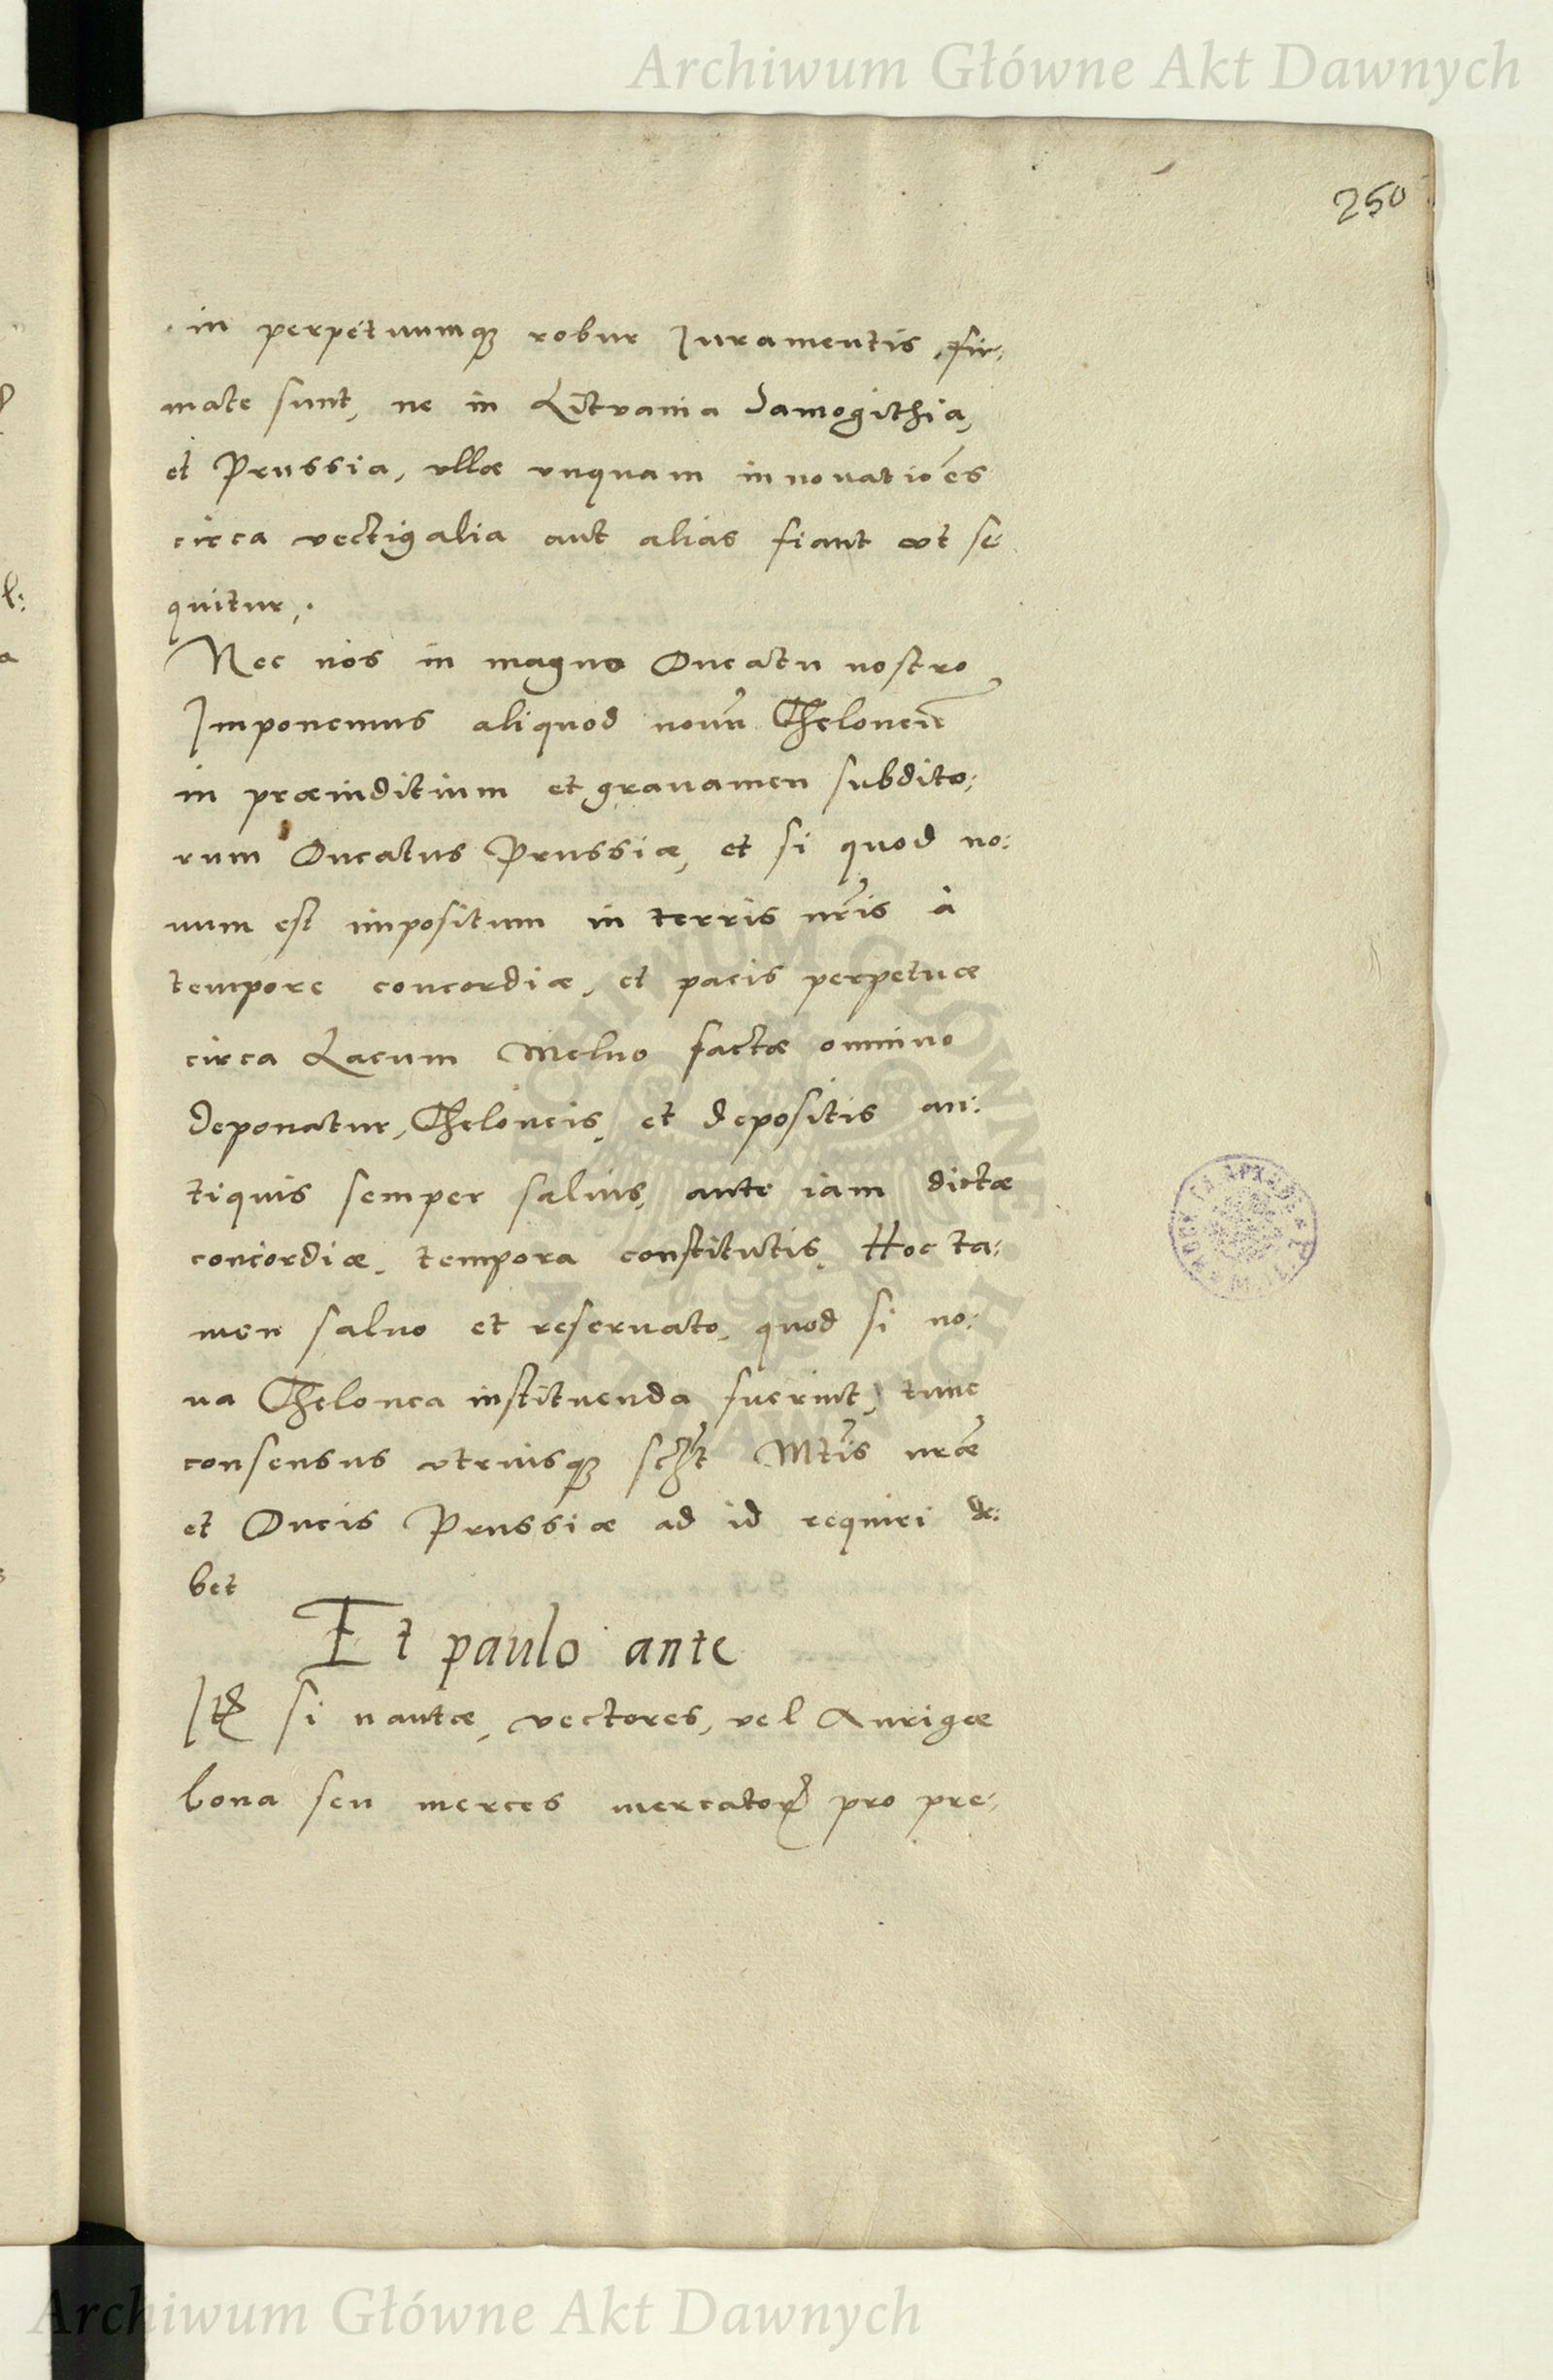 Archiwum Główne Akt Dawnych
250
in perpetuumq₃ robur Juramentis fir:
mate sunt, ne in Litvania Samogithia,
et Prussia, vllæ vnquam innouatiões
circa vectigalia aut alias fiant vt se
quitur,.
Nec nos in magno Ducatu nostro
Imponemus aliquod nouũ Theloneũ
in præiuditium et grauamen subdito:
rum Ducatus Prussiæ, et si quod no:
uum est impositum in terris nr̃is à
tempore concordiæ, et pacis perpetuæ
circa Lacum Melno factæ omnino
deponatur, Theloneis, et depositis an:
tiquis semper saluis, ante iam dictæ
concordiæ, tempora constitutis, Hoc ta:
men saluo et reseruato, quod si no:
ua Thelonea instituenda fuerint, tunc
consensus vtriusq₃ sc̃t Mt̃is nr̃æ
et Ducis Prussiæ ad id requiri de:
bet
Et paulo ante
It̃ si nautæ, vectores, vel Aurigæ
bona seu merces mercatoꝝ pro pre:
Archiwum Główne Akt Dawnych